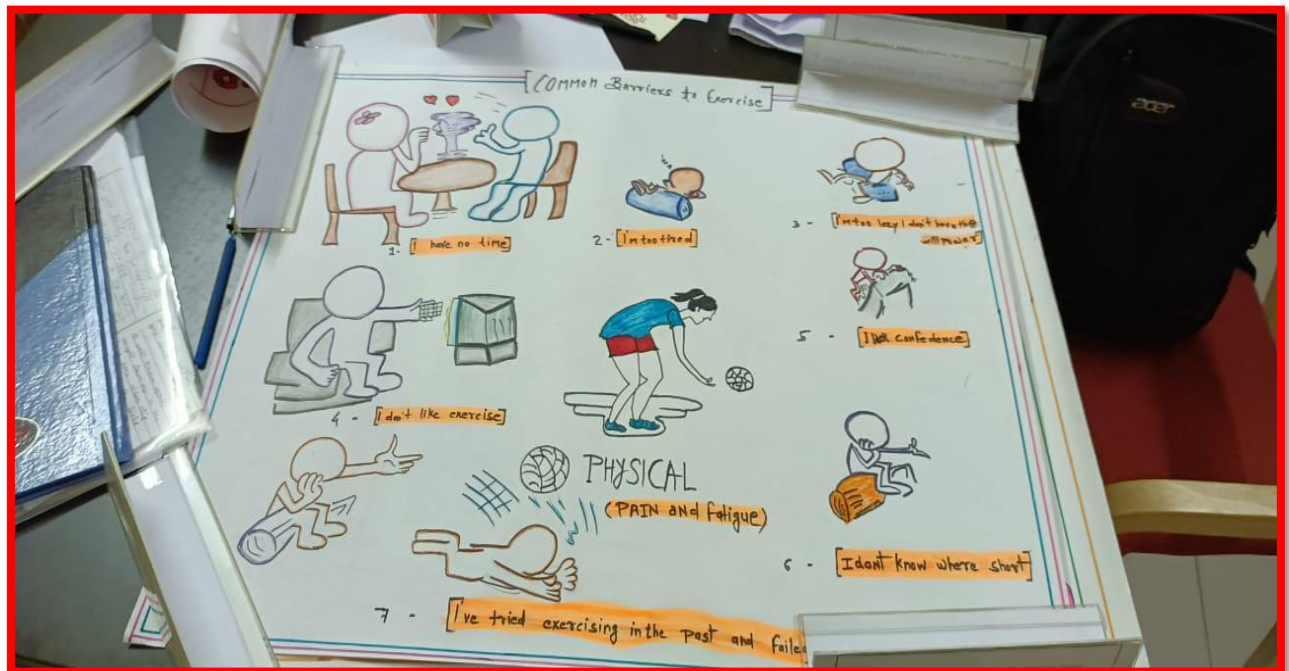 [COMMON Barriers to Exercise]
1- [I have no time]
2- [I'm too tired]
3 - [I'm too lazy I don't have the
will power]
4 - [I don't like exercise]
5 - [I confedence]
PHYSICAL
(PAIN and fatigue)
6 - [I dont know where short]
7 - [I've tried exercising in the past and failed
acer